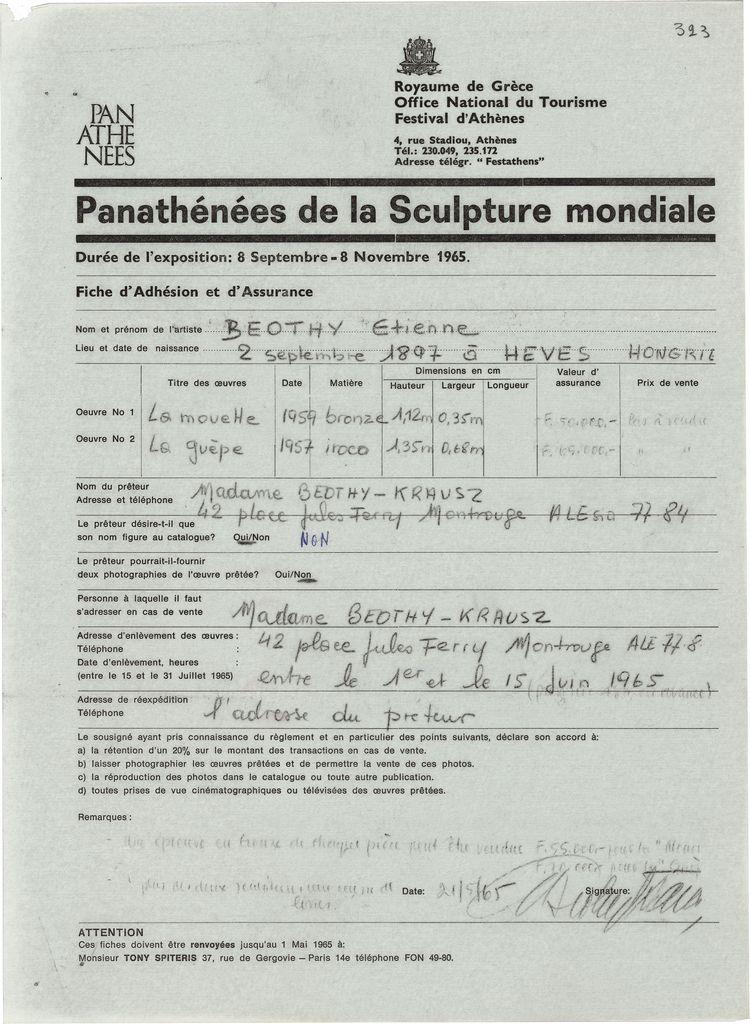 323
PAN
ATHE
NEES
Royaume de Grèce
Office National du Tourisme
Festival d'Athènes
4, rue Stadiou, Athènes
Tél.: 230.049, 235.172
Adresse télégr. "Festathens"
Panathénées de la Sculpture mondiale
Durée de l'exposition: 8 Septembre-8 Novembre 1965.
Fiche d'Adhésion et d'Assurance
Nom et prénom de l'artiste BEOTHY Etienne
Lieu et date de naissance 2 septembre 1897 à HEVES HONGRIE
Titre des œuvres Date Matière Dimensions en cm Valeur d' assurance Prix de vente
Hauteur Largeur Longueur
Oeuvre No 1 La mouette 1959 bronze 1,12m 0,35m F. 50.000,- Pas à vendre
Oeuvre No 2 La guêpe 1957 iroco 1,35m 0,68m F. 65.000,- " "
Nom du prêteur
Adresse et téléphone Madame BEOTHY-KRAUSZ
42 place Jules Ferry Montrouge ALEsia 77 84
Le prêteur désire-t-il que
son nom figure au catalogue? Oui/Non NON
Le prêteur pourrait-il-fournir
deux photographies de l'œuvre prêtée? Oui/Non
Personne à laquelle il faut
s'adresser en cas de vente Madame BEOTHY-KRAUSZ
Adresse d'enlèvement des œuvres: 42 place Jules Ferry Montrouge ALE 77-8
Téléphone :
Date d'enlèvement, heures :
(entre le 15 et le 31 Juillet 1965) entre le 1er et le 15 Juin 1965
Adresse de réexpédition
Téléphone l'adresse du prêteur
Le sousigné ayant pris connaissance du règlement et en particulier des points suivants, déclare son accord à:
a) la rétention d'un 20% sur le montant des transactions en cas de vente.
b) laisser photographier les œuvres prêtées et de permettre la vente de ces photos.
c) la réproduction des photos dans le catalogue ou toute autre publication.
d) toutes prises de vue cinématographiques ou télévisées des œuvres prêtées.
Remarques :
- Une épreuve en bronze de chaque pièce peut être vendue F. 55.000 pour la "
Date: 21/5/65 Signature:
ATTENTION
Ces fiches doivent être renvoyées jusqu'au 1 Mai 1965 à:
Monsieur TONY SPITERIS 37, rue de Gergovie – Paris 14e téléphone FON 49-80.